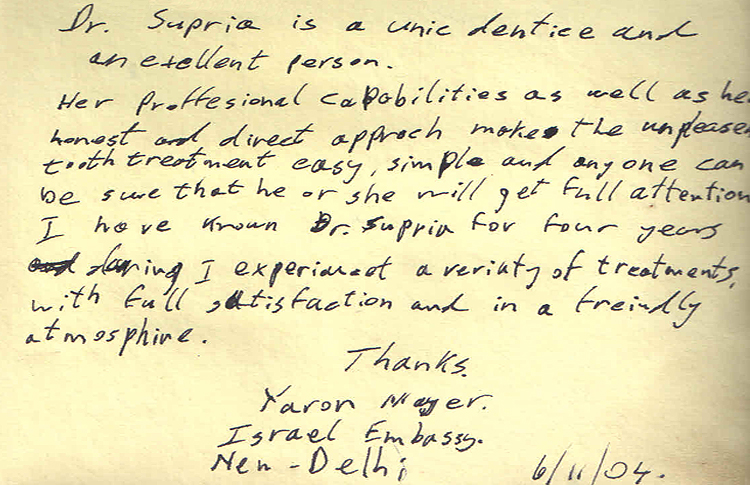 Dr. Supria is a unic dentice and
an exellent person.
Her proffesional capabilities as well as he
honest and direct approch makes the unpleasen
tooth treatment easy, simple and anyone can
be sure that he or she will get full attention
I have known Dr. Supria for four years
and during I experianct a veriaty of treatments,
with full satisfaction and in a freindly
atmosphire.
Thanks.
Yaron Mayer.
Israel Embassy.
New-Delhi
6/11/04.